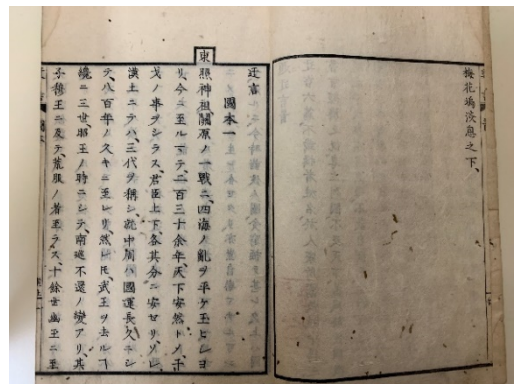 梅花塢淡窓之下、
迂言
國本一
東照神祖關原ノ一戰ニ、四海ノ亂ヲ平ケ玉ヒシヨ
リ、今ニ至ルマテ、二百三十余年、天下安然トノ、干
戈ノ事ヲシラス、君臣上下、各其分ニ安セリ、ソレ
漢土ニテハ、三代ヲ稱シ、就中周ハ國運長久ニシ
テ、八百年ノ久キニ至レリ、然レ𪜈、武王ヲ去ルヿ
纔ニ三世、昭王ノ時ニシテ、南巡不還ノ變アリ、其
子穆王ニ及テ、荒服ノ者至ラス、十餘世幽王ニ至